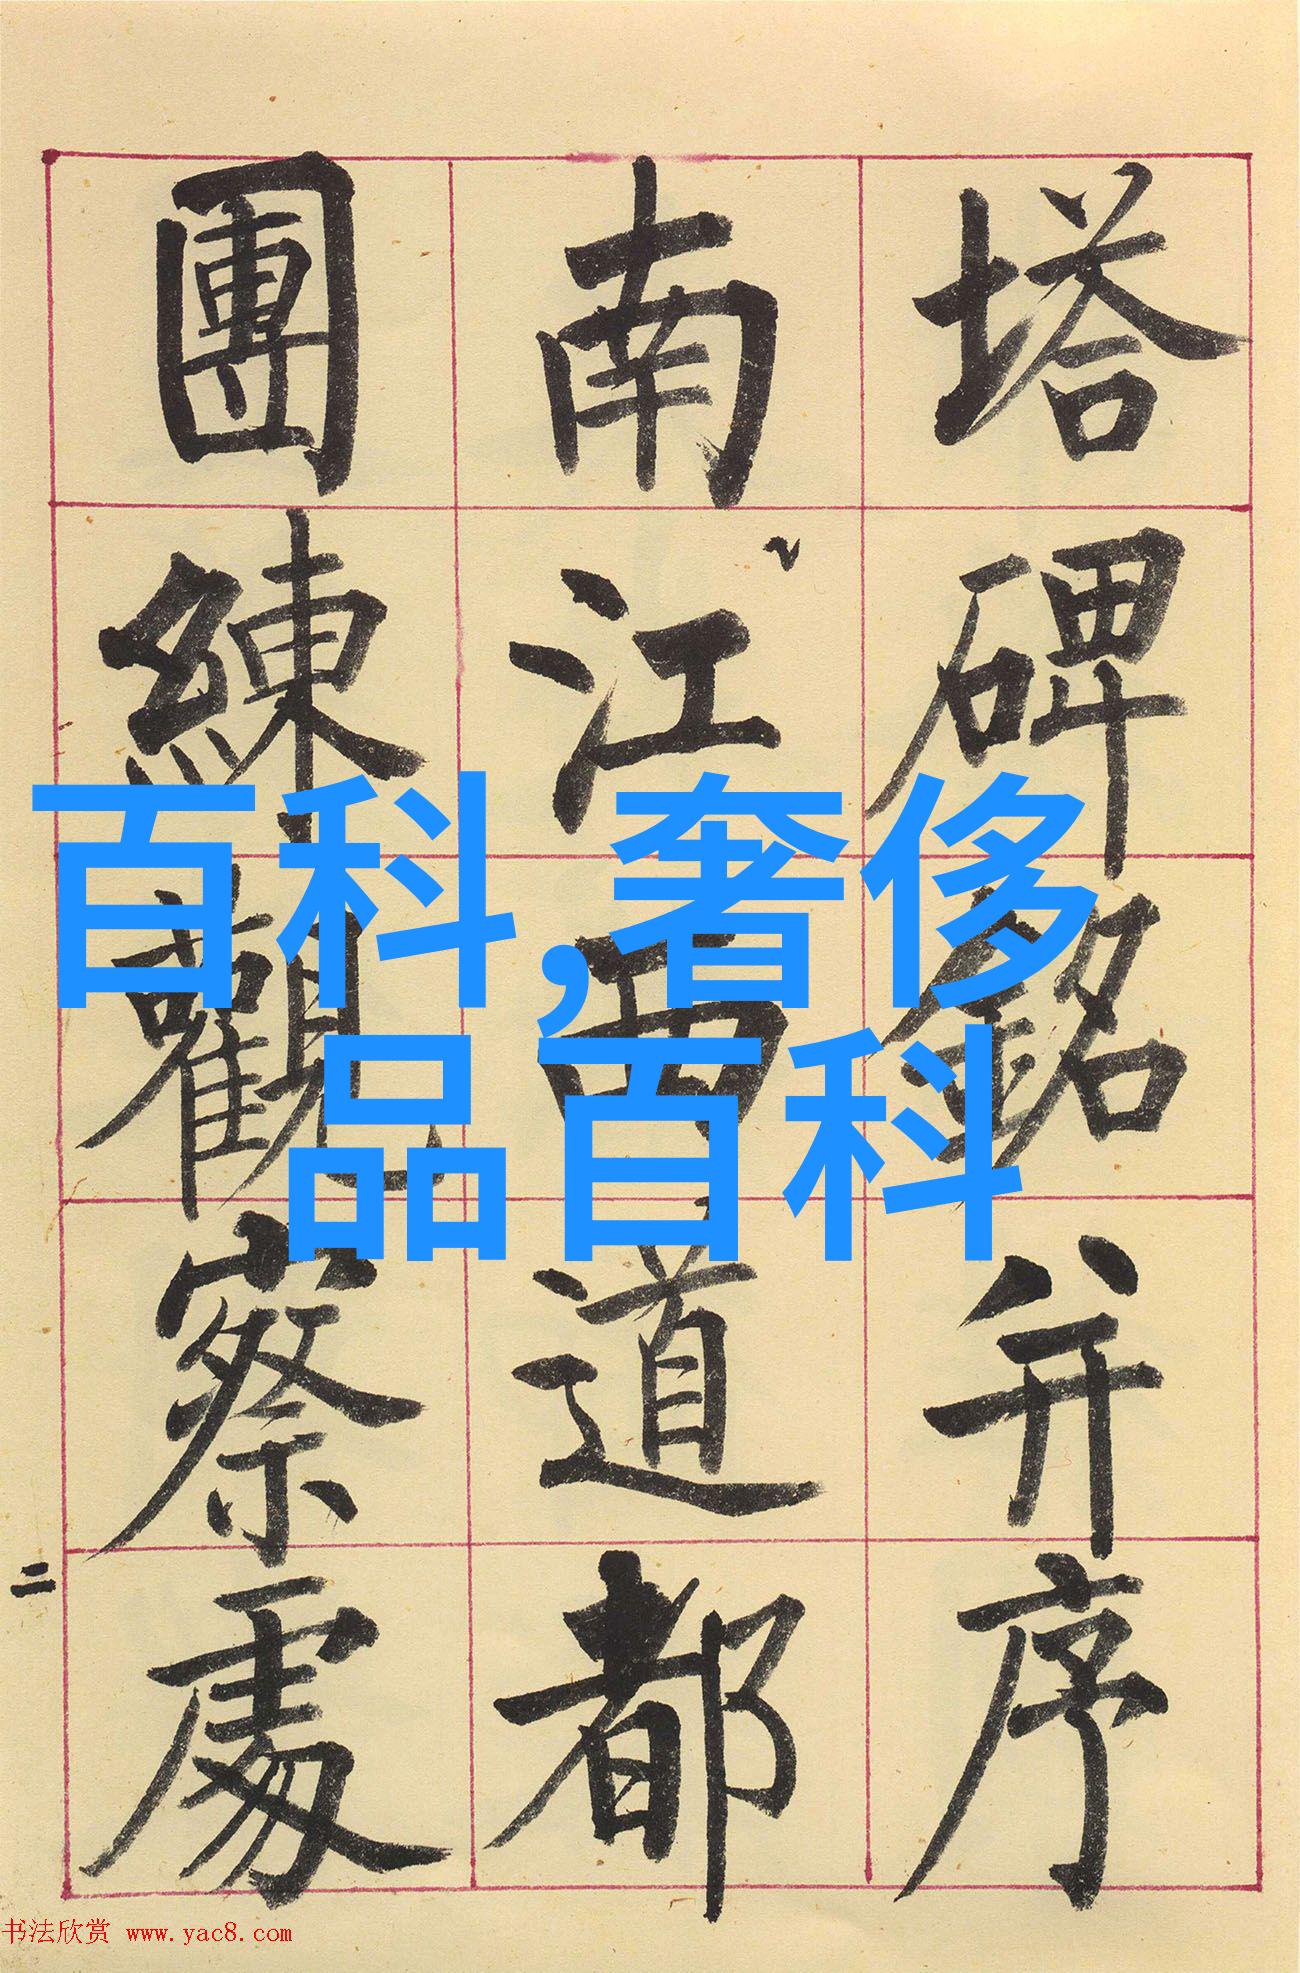 塔碑銘并序
南江西道都
團練觀察處
二
百科,奢侈
品百科
书法欣赏 www.yac8.com